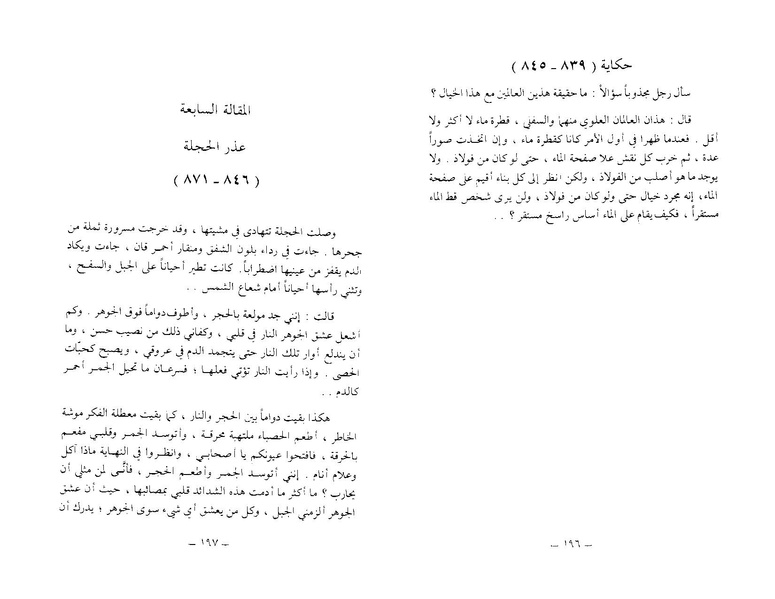 حكاية ( ٨٣٩ ـ ٨٤٥ )
سأل رجل مجذوباً سؤالاً : ما حقيقة هذين العالمين مع هذا الخيال ؟
قال : هذان العالمان العلوي منهما والسفلي ، قطرة ماء لا أكثر ولا
أقل . فعندما ظهرا في أول الأمر كانا كقطرة ماء ، وإن اتخذت صوراً
عدة ، ثم خرب كل نقش علا صفحة الماء ، حتى لو كان من فولاذ . ولا
يوجد ما هو أصلب من الفولاذ ، ولكن انظر إلى كل بناء أقيم على صفحة
الماء، إنه مجرد خيال حتى ولو كان من فولاذ ، ولن يرى شخص قط الماء
مستقراً ، فكيف يقام على الماء أساس راسخ مستقر ؟ . .
ـ ١٩٦ ـ
المقالة السابعة
عذر الحجلة
( ٨٤٦ ـ ٨٧١ )
وصلت الحجلة تتهادى في مشيتها ، وقد خرجت مسرورة ثملة من
جحرها . جاءت في رداء بلون الشفق ومنقار أحمر قان ، جاءت ويكاد
الدم يقفز من عينيها اضطراباً. كانت تطير أحياناً على الجبل والسفح ،
وتثني رأسها أحياناً أمام شعاع الشمس . .
قالت : إنني جد مولعة بالحجر ، وأطوف دواماً فوق الجوهر . وكم
أشعل عشق الجوهر النار في قلبي ، وكفاني ذلك من نصيب حسن ، وما
أن يندلع أوار تلك النار حتى يتجمد الدم في عروقي ، ويصبح كحبّات
الحصى . وإذا رأيت النار تؤتي فعلها ؛ فسرعان ما تحيل الجمر أحمر
كالدم . .
هكذا بقيت دواماً بين الحجر والنار ، كما بقيت معطلة الفكر موشة
الخاطر ، أطعم الحصباء ملتهبة محرقة ، وأتوسد الجمر وقلبي مفعم
بالحرقة ، فافتحوا عيونكم يا أصحابي ، وانظروا في النهاية ماذا آكل
وعلام أنام . إنني أتوسد الجمر وأطعم الحجر ، فأنّى لمن مثلي أن
يحارب ؟ ما أكثر ما أدمت هذه الشدائد قلبي بمصائبها ، حيث أن عشق
الجوهر ألزمني الجبل ، وكل من يعشق أي شيء سوى الجوهر ؛ يدرك أن
ـ ١٩٧ ـ